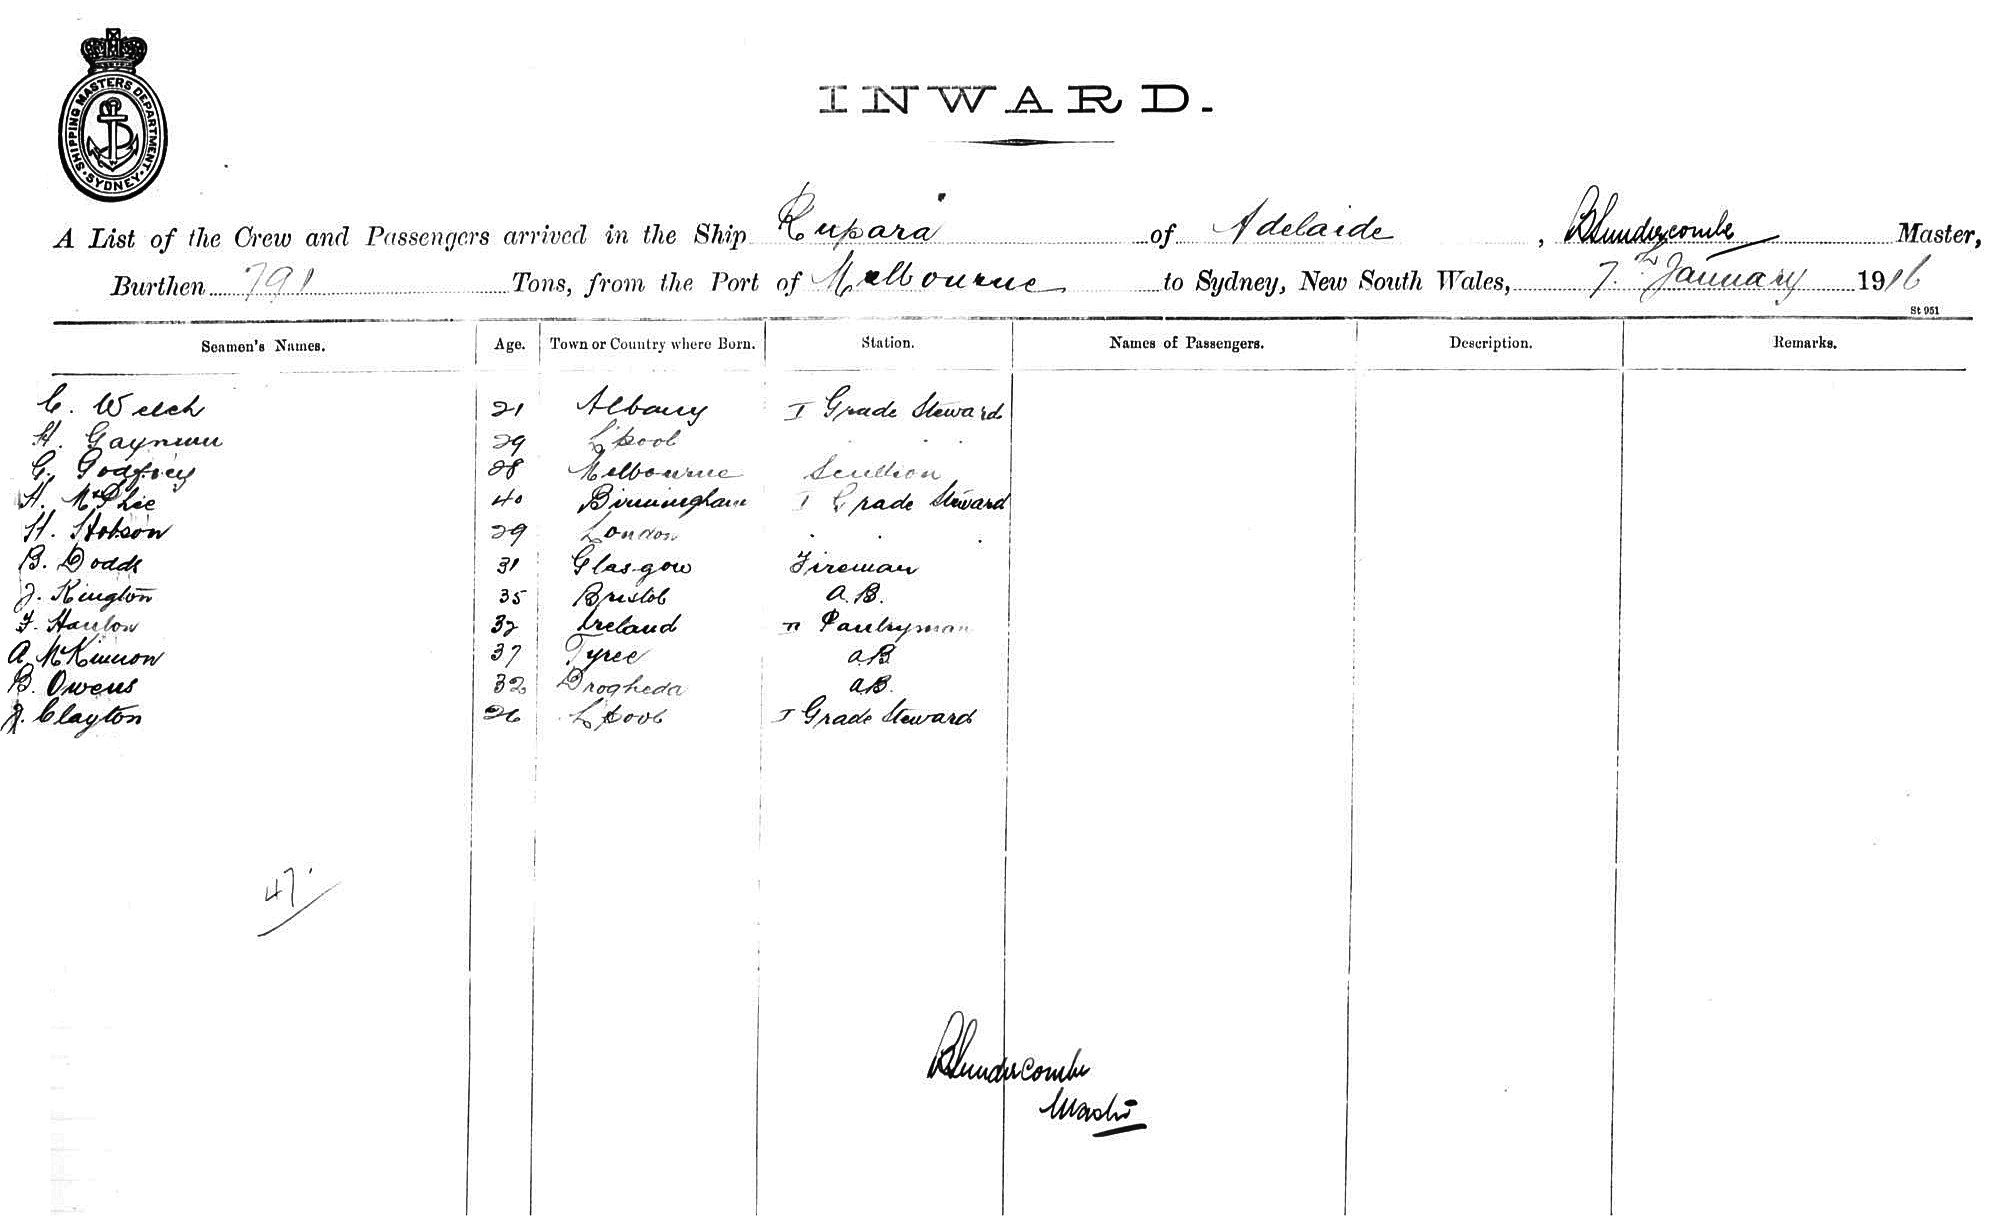 SHIPPING MASTERS DEPARTMENT. SYDNEY
INWARD.
A List of the Crew and Passengers arrived in the Ship Rupara of Adelaide, Master,
Burthen 791 Tons, from the Port of Melbourne to Sydney, New South Wales, 7th January 1916
St 951
Seamen's Names. Age. Town or Country where Born. Station. Names of Passengers. Description. Remarks.
C. Welch 21 Albany I Grade Steward
H. 29 L'pool " "
G. Godfrey 28 Melbourne Scullion
H. McPhie 40 Birmingham I Grade Steward
H. Hobson 29 London " "
B. Dodds 31 Glasgow Fireman
J. Kington 35 Bristol A.B.
F. Hanlon 32 Ireland II Pantryman
A McKinnon 37 Tyree A.B.
B. Owens 32 Drogheda A.B.
J. Clayton 26 L'pool I Grade Steward
47.
Master